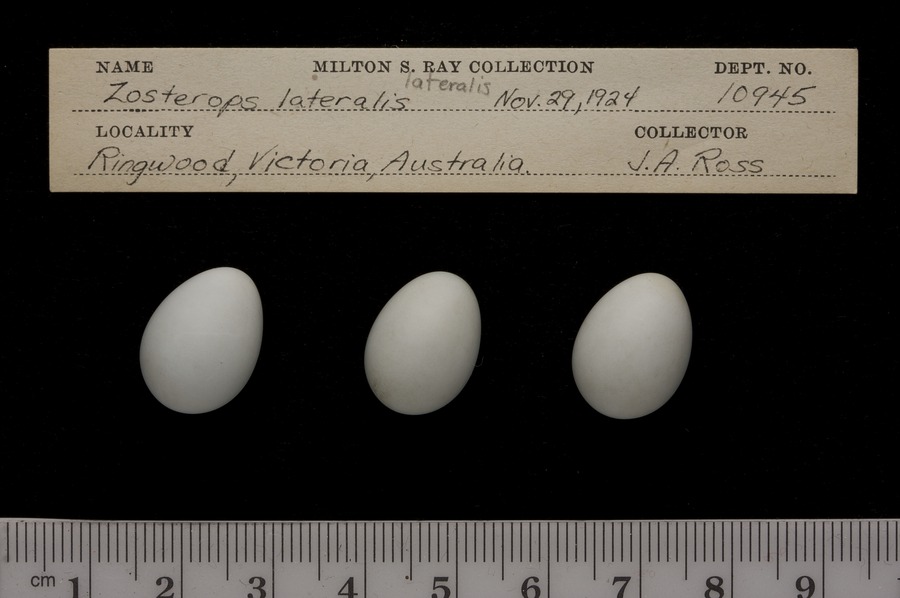 NAME MILTON S. RAY COLLECTION DEPT. NO.
lateralis
Zosterops lateralis Nov. 29, 1924 10945
LOCALITY COLLECTOR
Ringwood, Victoria, Australia. J.A. Ross
cm 1 2 3 4 5 6 7 8 9